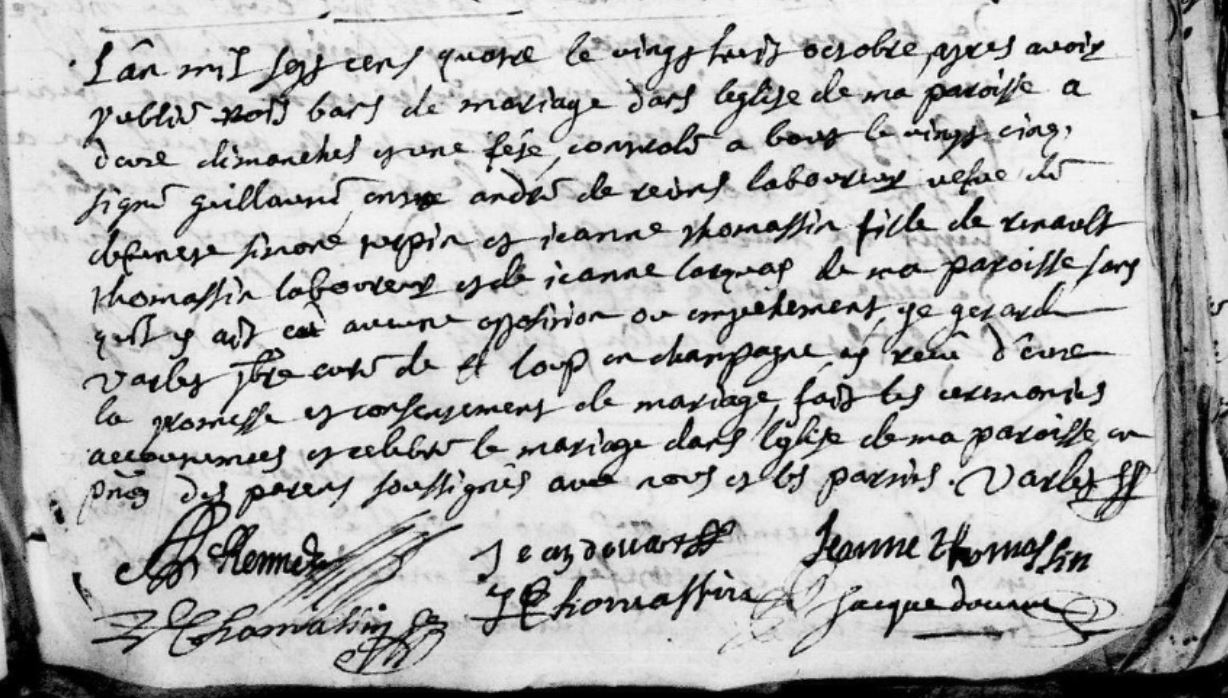 L'an mil sept cens quatre le vingt huit octobre, apres avoir
publié trois bans de mariage dans l'eglise de ma paroisse a
deux dimanches et une feste, controlé a le vingt cinq,
signé guillaume, entre andré de reims laboureur vefve de
deffuncte simone et jeanne thomassin fille de renault
thomassin laboureur et de jeanne de ma paroisse sans
qu'il y ait eu aucune opposition ou empechement, je gerard
Varlet pbre curé de st loup en champagne ay receu d'eux
la promesse et consentement de mariage, fait les ceremonies
accoutumées et celebré le mariage dans l'eglise de ma paroisse en
pnce des parens soussignés avec nous et les parties. Varlet
Jean Jeanne Thomassin
Thomassin J Thomassin Jacque